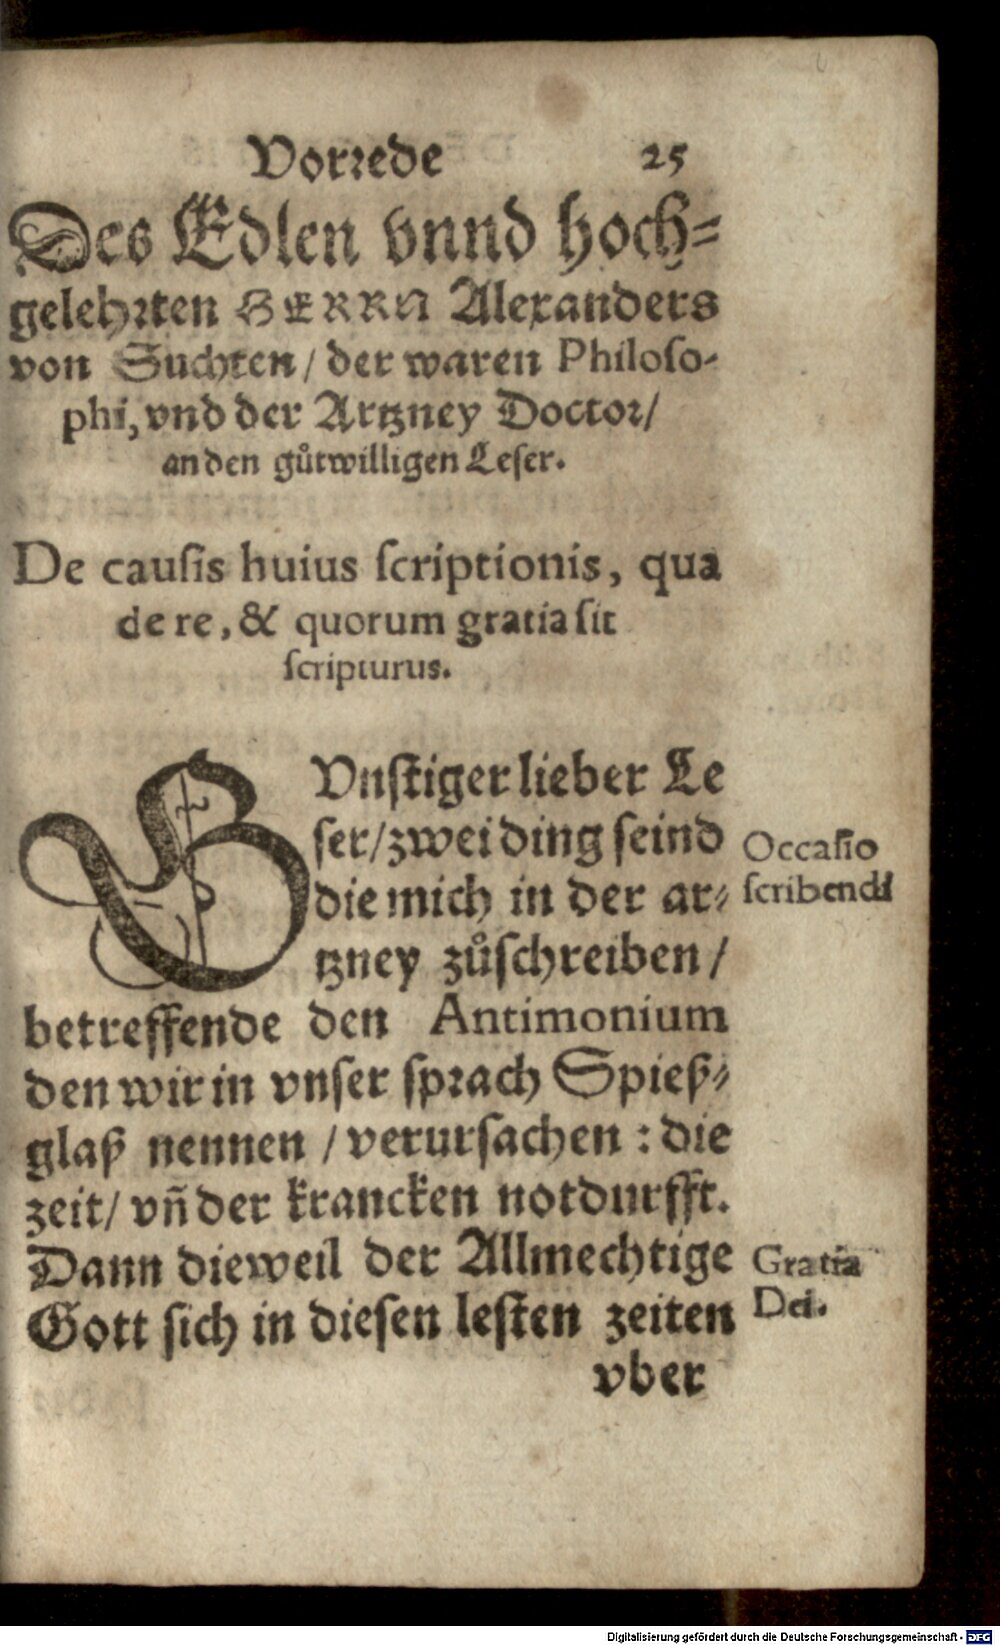 Vorrede 25
Des Edlen vnnd hoch-
gelehrten HERRN Alexanders
von Suchten / der waren Philoso-
phi, vnd der Artzney Doctor /
an den gůtwilligen Leser.
De causis huius scriptionis, qua
de re, & quorum gratia sit
scripturus.
GVnstiger lieber Le
ser / zwei ding seind
die mich in der ar-
tzney zůschreiben /
betreffende den Antimonium
den wir in vnser sprach Spieß-
glaß nennen / verursachen : die
zeit / vñ der krancken notdurfft.
Dann dieweil der Allmechtige
Gott sich in diesen lesten zeiten
vber
Occasio
scribendi
Gratia
Dei.
Digitalisierung gefördert durch die Deutsche Forschungsgemeinschaft - DFG